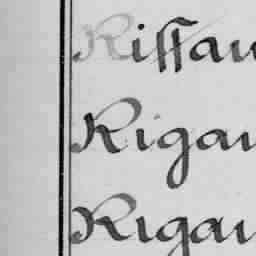 Rissau
Rigau
Rigau